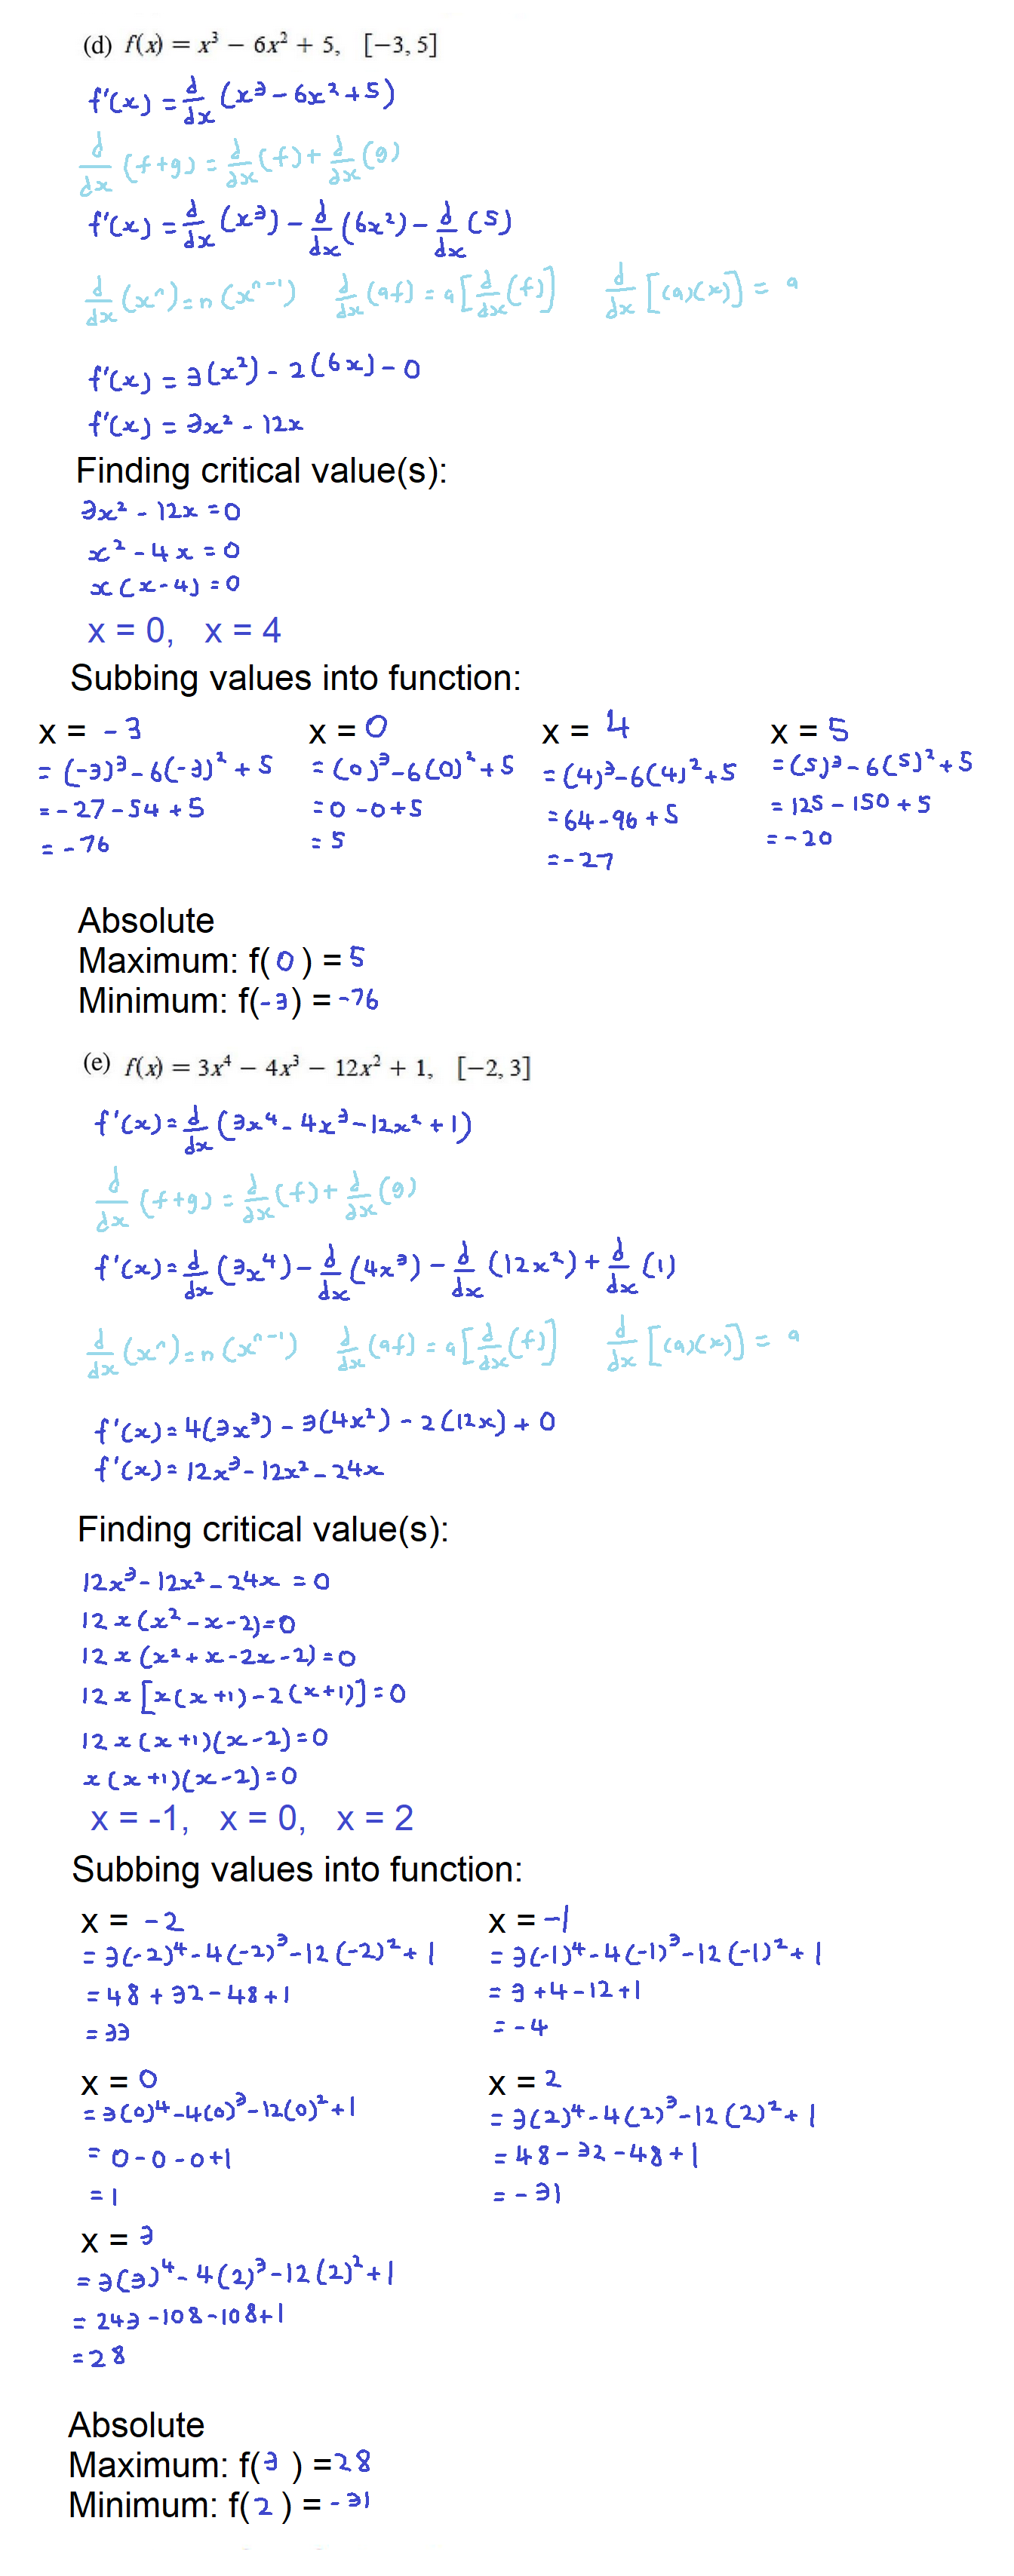 (d) f(x) = x³ − 6x² + 5, [−3, 5]
f'(x) = d/dx (x³ - 6x² + 5)
d/dx (f+g) = d/dx (f) + d/dx (g)
f'(x) = d/dx (x³) - d/dx (6x²) - d/dx (5)
d/dx (xⁿ) = n(xⁿ⁻¹) d/dx (af) = a[d/dx (f)] d/dx [(a)(x)] = a
f'(x) = 3(x²) - 2(6x) - 0
f'(x) = 3x² - 12x
Finding critical value(s):
3x² - 12x = 0
x² - 4x = 0
x(x-4) = 0
x = 0, x = 4
Subbing values into function:
x = -3 x = 0 x = 4 x = 5
= (-3)³ - 6(-3)² + 5 = (0)³ - 6(0)² + 5 = (4)³ - 6(4)² + 5 = (5)³ - 6(5)² + 5
= -27 - 54 + 5 = 0 - 0 + 5 = 64 - 96 + 5 = 125 - 150 + 5
= -76 = 5 = -27 = -20
Absolute
Maximum: f(0) = 5
Minimum: f(-3) = -76
(e) f(x) = 3x⁴ − 4x³ − 12x² + 1, [−2, 3]
f'(x) = d/dx (3x⁴ - 4x³ - 12x² + 1)
d/dx (f+g) = d/dx (f) + d/dx (g)
f'(x) = d/dx (3x⁴) - d/dx (4x³) - d/dx (12x²) + d/dx (1)
d/dx (xⁿ) = n(xⁿ⁻¹) d/dx (af) = a[d/dx (f)] d/dx [(a)(x)] = a
f'(x) = 4(3x³) - 3(4x²) - 2(12x) + 0
f'(x) = 12x³ - 12x² - 24x
Finding critical value(s):
12x³ - 12x² - 24x = 0
12x(x² - x - 2) = 0
12x(x² + x - 2x - 2) = 0
12x[x(x+1) - 2(x+1)] = 0
12x(x+1)(x-2) = 0
x(x+1)(x-2) = 0
x = -1, x = 0, x = 2
Subbing values into function:
x = -2 x = -1
= 3(-2)⁴ - 4(-2)³ - 12(-2)² + 1 = 3(-1)⁴ - 4(-1)³ - 12(-1)² + 1
= 48 + 32 - 48 + 1 = 3 + 4 - 12 + 1
= 33 = -4
x = 0 x = 2
= 3(0)⁴ - 4(0)³ - 12(0)² + 1 = 3(2)⁴ - 4(2)³ - 12(2)² + 1
= 0 - 0 - 0 + 1 = 48 - 32 - 48 + 1
= 1 = -31
x = 3
= 3(3)⁴ - 4(2)³ - 12(2)² + 1
= 243 - 108 - 108 + 1
= 28
Absolute
Maximum: f(3) = 28
Minimum: f(2) = -31